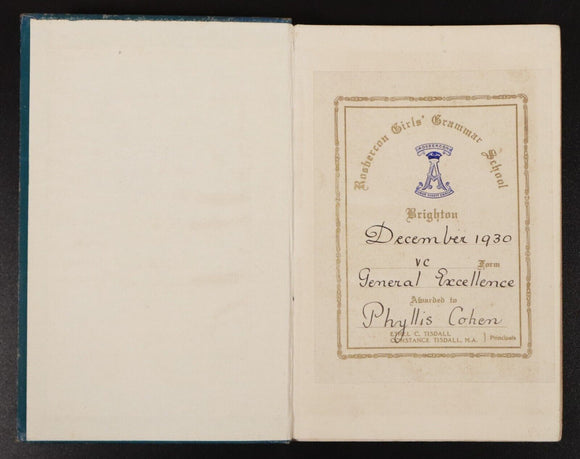 Rosbercon Girls' Grammar School
ROSBERCON
Brighton
December 1930
VC Form
General Excellence
Awarded to
Phyllis Cohen
ETHEL C. TISDALL
CONSTANCE TISDALL, M.A. } Principals